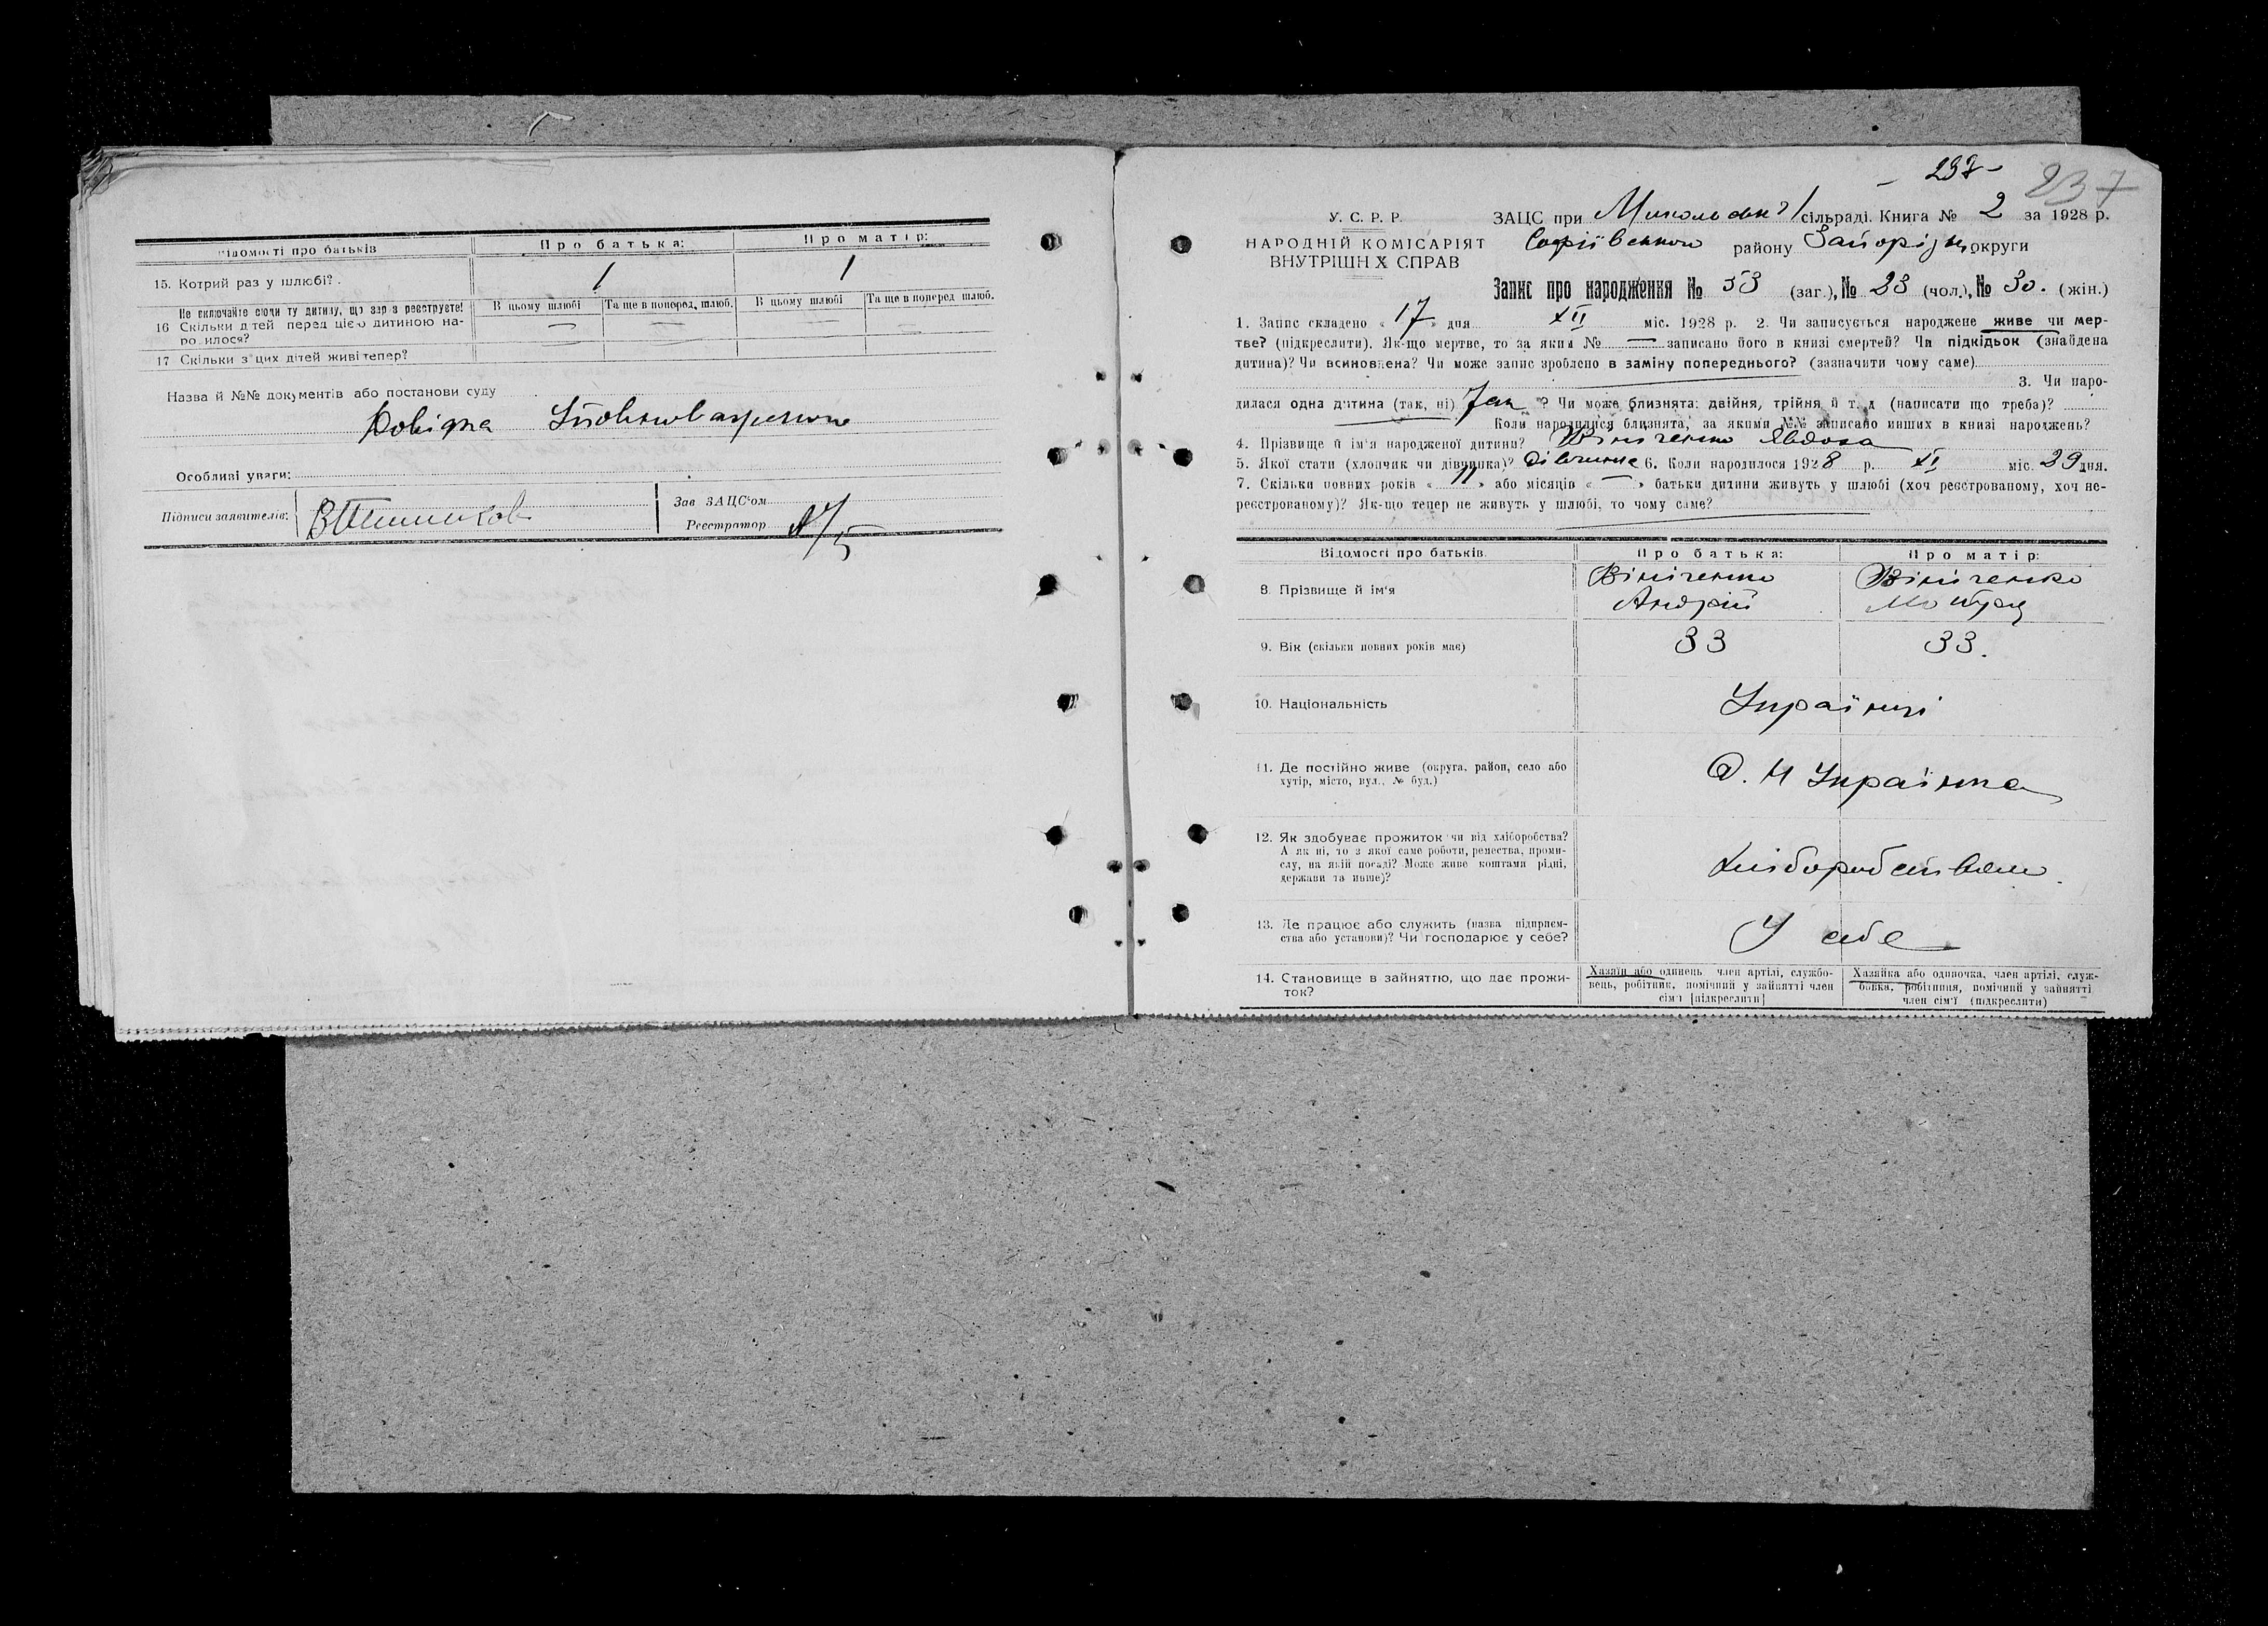 Відомості про батьків
Про батька:
Про матір:
15. Котрий раз у шлюбі?
1
1
Не включайте сюди ту дитину, що зараз реєструєте!
16 Скільки дітей перед цією дитиною народилося?
В цьому шлюбі
Та ще в поперед. шлюб.
В цьому шлюбі
Та ще в поперед шлюб.
— — — —
17 Скільки з цих дітей живі тепер?
Назва й №№ документів або постанови суду
Довідка
Особливі уваги:
Підписи заявителів:
Зав ЗАЦС'ом
Реєстратор
- 237 -
237
У. С. Р. Р.
НАРОДНІЙ КОМІСАРІЯТ
ВНУТРІШНІХ СПРАВ
ЗАЦС при Микольськ сільраді. Книга № 2 за 1928 р.
Софіївського району Запорізьк округи
Запис про народження № 53 (заг.), № 23 (чол.), № 30. (жін.)
1. Запис складено « 17 » дня XII міс. 1928 р. 2. Чи записується народжене живе чи мер-
тве? (підкреслити). Як-що мертве, то за яким № — записано його в книзі смертей? Чи підкідьок (знайдена
дитина)? Чи всиновлена? Чи може запис зроблено в заміну попереднього? (зазначити чому саме)
3. Чи наро-
дилася одна дитина (так, ні) Так ? Чи може близнята: двійня, трійня й т. д (написати що треба)?
Коли народилися близнята, за якими №№ записано инших в книзі народжень?
4. Прізвище й ім'я народженої дитини? Вініченко Явдоха
5. Якої стати (хлопчик чи дівчинка)? Дівчинка 6. Коли народилося 1928 р. XI міс. 29 дня.
7. Скільки повних років « 11 » або місяців « — » батьки дитини живуть у шлюбі (хоч реєстрованому, хоч не-
реєстрованому)? Як-що тепер не живуть у шлюбі, то чому саме?
Відомості про батьків.
Про батька:
Про матір:
8. Прізвище й ім'я
Вініченко
Андрій
Вініченко
Мотря
9. Вік (скільки повних років має)
33
33.
10. Національність
Українці
11. Де постійно живе (округа, район, село або
хутір, місто, вул., № буд.)
Українка
12. Як здобуває прожиток чи від хліборобства?
А як ні, то з якої саме роботи, ремества, проми-
слу, на якій посаді? Може живе коштами рідні,
держави та инше)?
Хліборобством.
13. Де працює або служить (назва підприєм-
ства або установи)? Чи господарює у себе?
У себе
14. Становище в зайняттю, що дає прожи-
ток?
Хазяїн або одинець член артілі, службо-
вець, робітник, помічний у зайнятті член
сім'ї [підкреслити]
Хазяйка або одиночка, член артілі, служ-
бовка, робітниця, помічний у зайнятті
член сім'ї (підкреслити)